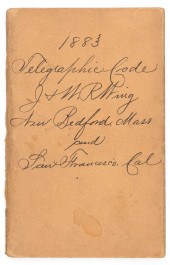 1883
Telegraphic Code
J & W R Wing
New Bedford Mass
and
San Francisco Cal